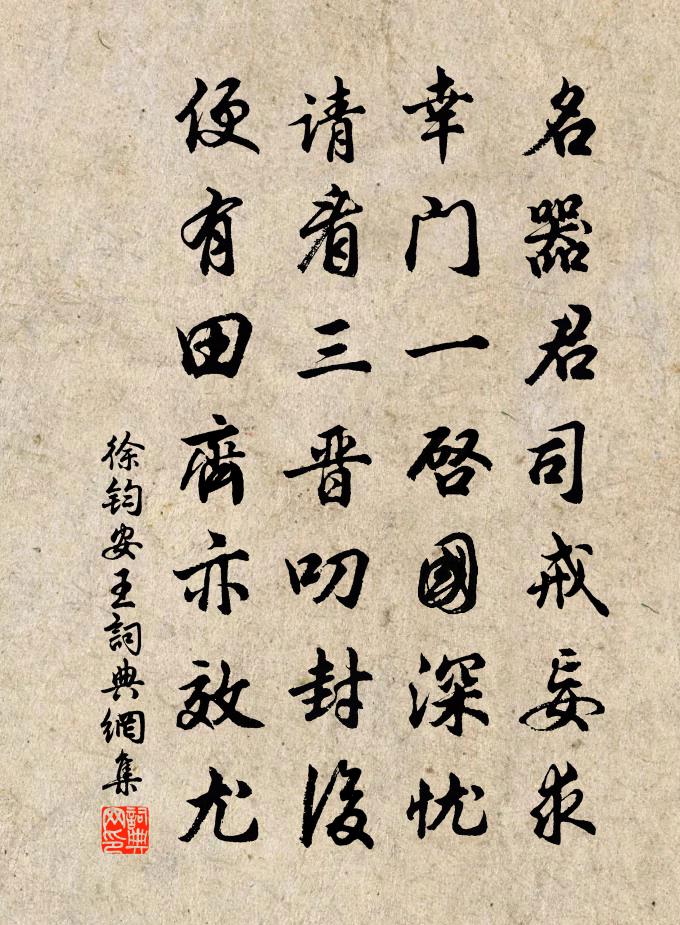 名器君司戒妄求
幸门一启國深忧
请看三晋叨封後
便有田齊亦效尤
徐钧安王詞典網集
詞典网印